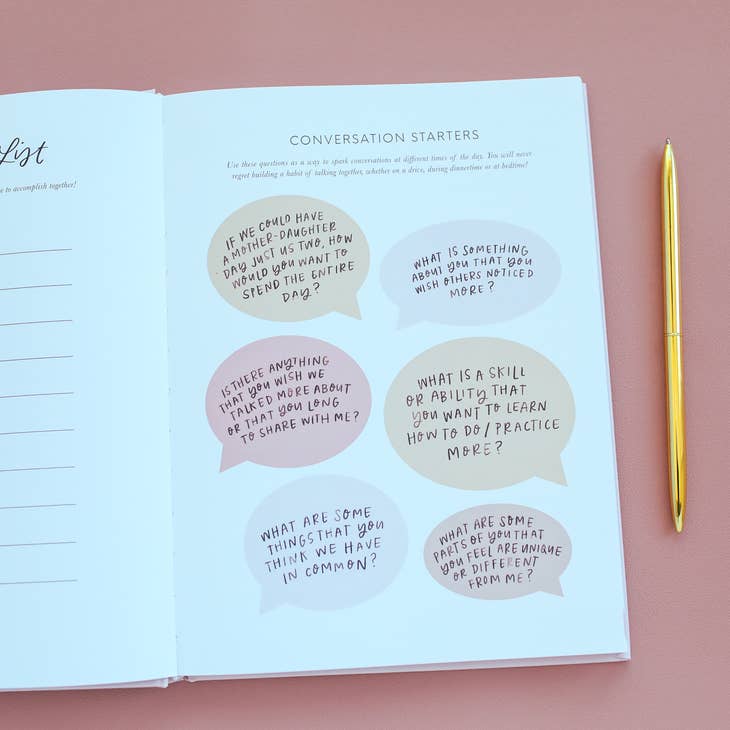 List
to accomplish together!
CONVERSATION STARTERS
Use these questions as a way to spark conversations at different times of the day. You will never
regret building a habit of talking together, whether on a drive, during dinnertime or at bedtime!
IF WE COULD HAVE
A MOTHER-DAUGHTER
DAY JUST US TWO, HOW
WOULD YOU WANT TO
SPEND THE ENTIRE
DAY?
WHAT IS SOMETHING
ABOUT YOU THAT YOU
WISH OTHERS NOTICED
MORE?
IS THERE ANYTHING
THAT YOU WISH WE
TALKED MORE ABOUT
OR THAT YOU LONG
TO SHARE WITH ME?
WHAT IS A SKILL
OR ABILITY THAT
YOU WANT TO LEARN
HOW TO DO/PRACTICE
MORE?
WHAT ARE SOME
THINGS THAT YOU
THINK WE HAVE
IN COMMON?
WHAT ARE SOME
PARTS OF YOU THAT
YOU FEEL ARE UNIQUE
OR DIFFERENT
FROM ME?